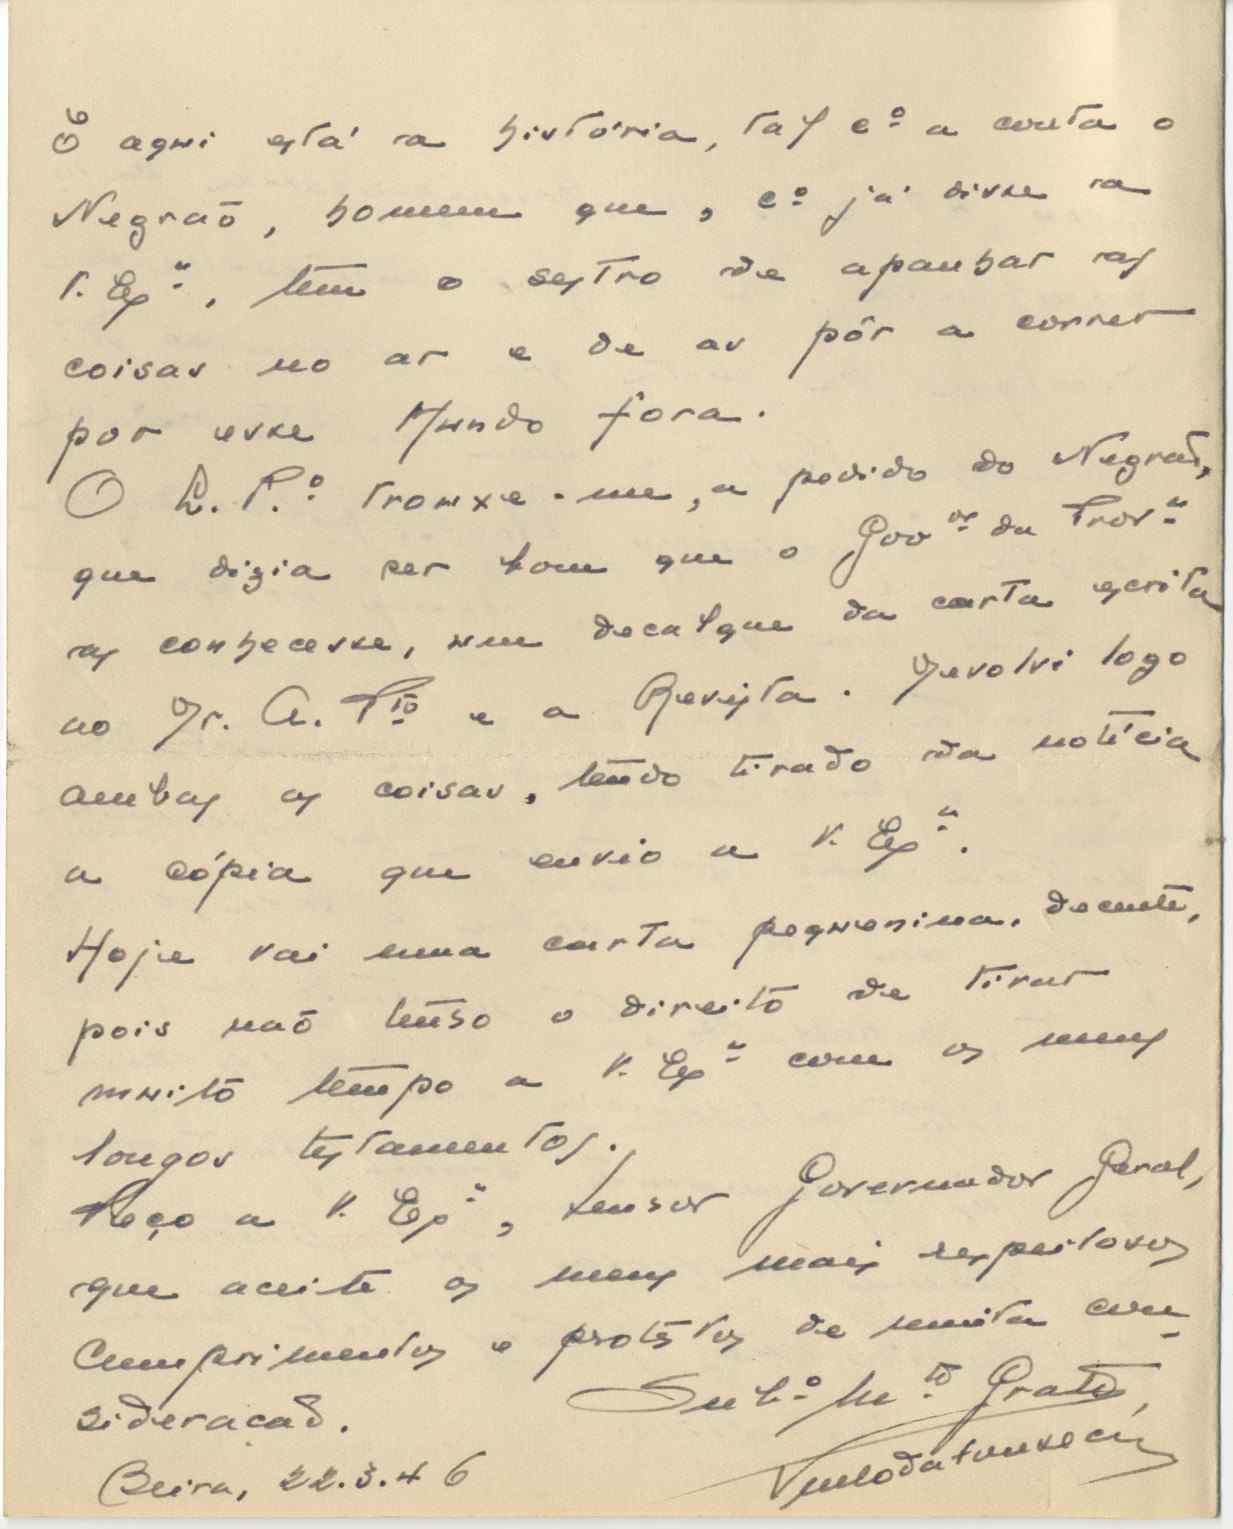 E aqui está a história, tal cº a conta o
Negrão, homem que, cº já disse a
V. Exª, tem o sestro de apanhar as
coisas no ar e de as pôr a correr
por esse Mundo fora.
O L. P.º trouxe-me, a pedido do Negrão,
que dizia ser bom que o Govºʳ da Provª
as conhecesse, um decalque da carta escrita
ao Dr. A. Pᵗº e a Revista. Devolvi logo
ambas as coisas, tendo tirado da notícia
a cópia que envio a V. Exª.
Hoje vai uma carta pequenina, decente,
pois não tenho o direito de tirar
muito tempo a V. Exª com os meus
longos testamentos.
Peço a V. Exª, Senhor Governador Geral,
que aceite os meus mais respeitosos
cumprimentos e protestos de muita con-
sideração.
Subº Mᵗº Grato,
Beira, 22.3.46